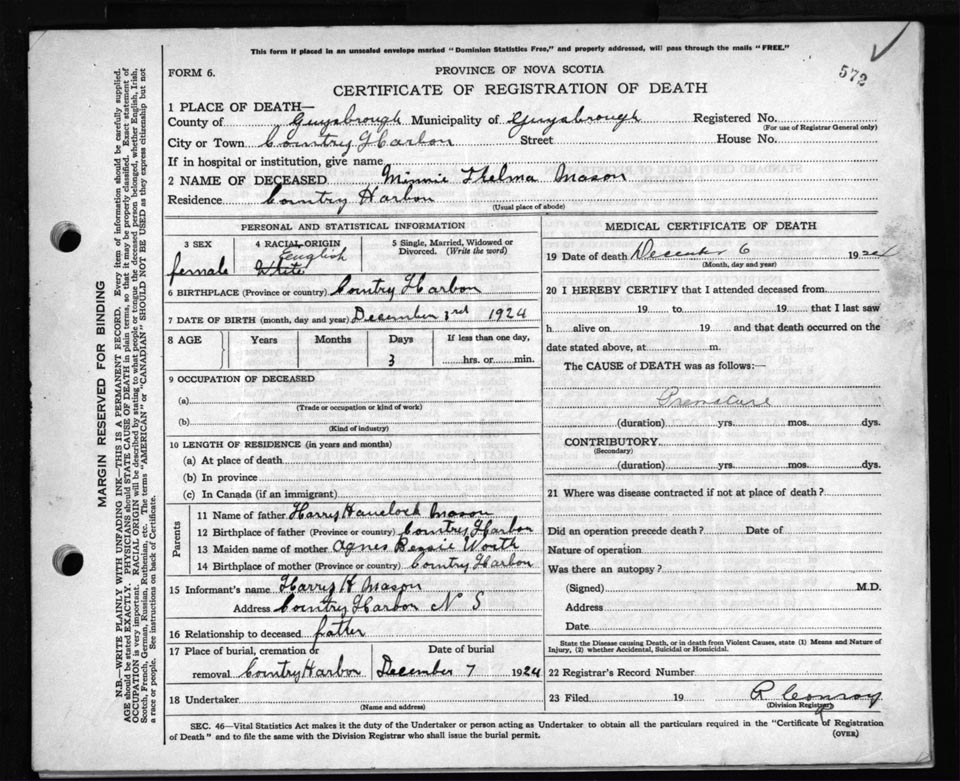 This form if placed in an unsealed envelope marked "Dominion Statistics Free," and properly addressed, will pass through the mails "FREE."
572
FORM 6.
PROVINCE OF NOVA SCOTIA
CERTIFICATE OF REGISTRATION OF DEATH
1 PLACE OF DEATH—
County of Guysbrough Municipality of Guysbrough Registered No.
(For use of Registrar General only)
City or Town Country Harbon Street House No.
If in hospital or institution, give name
2 NAME OF DECEASED Minnie Thelma Mason
Residence Country Harbon
(Usual place of abode)
PERSONAL AND STATISTICAL INFORMATION
3 SEX 4 RACIAL ORIGIN 5 Single, Married, Widowed or Divorced. (Write the word)
English
female White
6 BIRTHPLACE (Province or country) Country Harbon
7 DATE OF BIRTH (month, day and year) December 3rd 1924
8 AGE Years Months Days If less than one day,
3 hrs. or min.
9 OCCUPATION OF DECEASED
(a)
(Trade or occupation or kind of work)
(b)
(Kind of industry)
10 LENGTH OF RESIDENCE (in years and months)
(a) At place of death
(b) In province
(c) In Canada (if an immigrant)
Parents
11 Name of father Harry Havelock Mason
12 Birthplace of father (Province or country) Country Harbon
13 Maiden name of mother Agnes Bessie Worth
14 Birthplace of mother (Province or country) Country Harbon
15 Informant's name Harry H Mason
Address Country Harbon N S
16 Relationship to deceased father
17 Place of burial, cremation or Date of burial
removal Country Harbon December 7 1924
18 Undertaker
(Name and address)
MEDICAL CERTIFICATE OF DEATH
19 Date of death December 6 1924
(Month, day and year)
20 I HEREBY CERTIFY that I attended deceased from
19 to 19 that I last saw
h alive on 19 and that death occurred on the
date stated above, at m.
The CAUSE of DEATH was as follows:—
Premature
(duration) yrs. mos. dys.
CONTRIBUTORY
(Secondary)
(duration) yrs. mos. dys.
21 Where was disease contracted if not at place of death?
Did an operation precede death? Date of
Nature of operation
Was there an autopsy?
(Signed) M.D.
Address
Date
State the Disease causing Death, or in death from Violent Causes, state (1) Means and Nature of
Injury, (2) whether Accidental, Suicidal or Homicidal.
22 Registrar's Record Number
23 Filed 19 R Conroy
(Division Registrar)
SEC. 46—Vital Statistics Act makes it the duty of the Undertaker or person acting as Undertaker to obtain all the particulars required in the "Certificate of Registration
of Death" and to file the same with the Division Registrar who shall issue the burial permit.
(OVER)
MARGIN RESERVED FOR BINDING
N.B.—WRITE PLAINLY WITH UNFADING INK—THIS IS A PERMANENT RECORD. Every item of information should be carefully supplied.
AGE should be stated EXACTLY. PHYSICIANS should STATE CAUSE OF DEATH in plain terms, so that it may be properly classified. Exact statement of
OCCUPATION is very important. RACIAL ORIGIN will be described by stating to what people or tongue the deceased person belonged, whether English, Irish,
Scotch, French, German, Russian, Ruthenian, etc. The terms "AMERICAN" or "CANADIAN" SHOULD NOT BE USED as they express citizenship but not
a race or people. See instructions on back of Certificate.